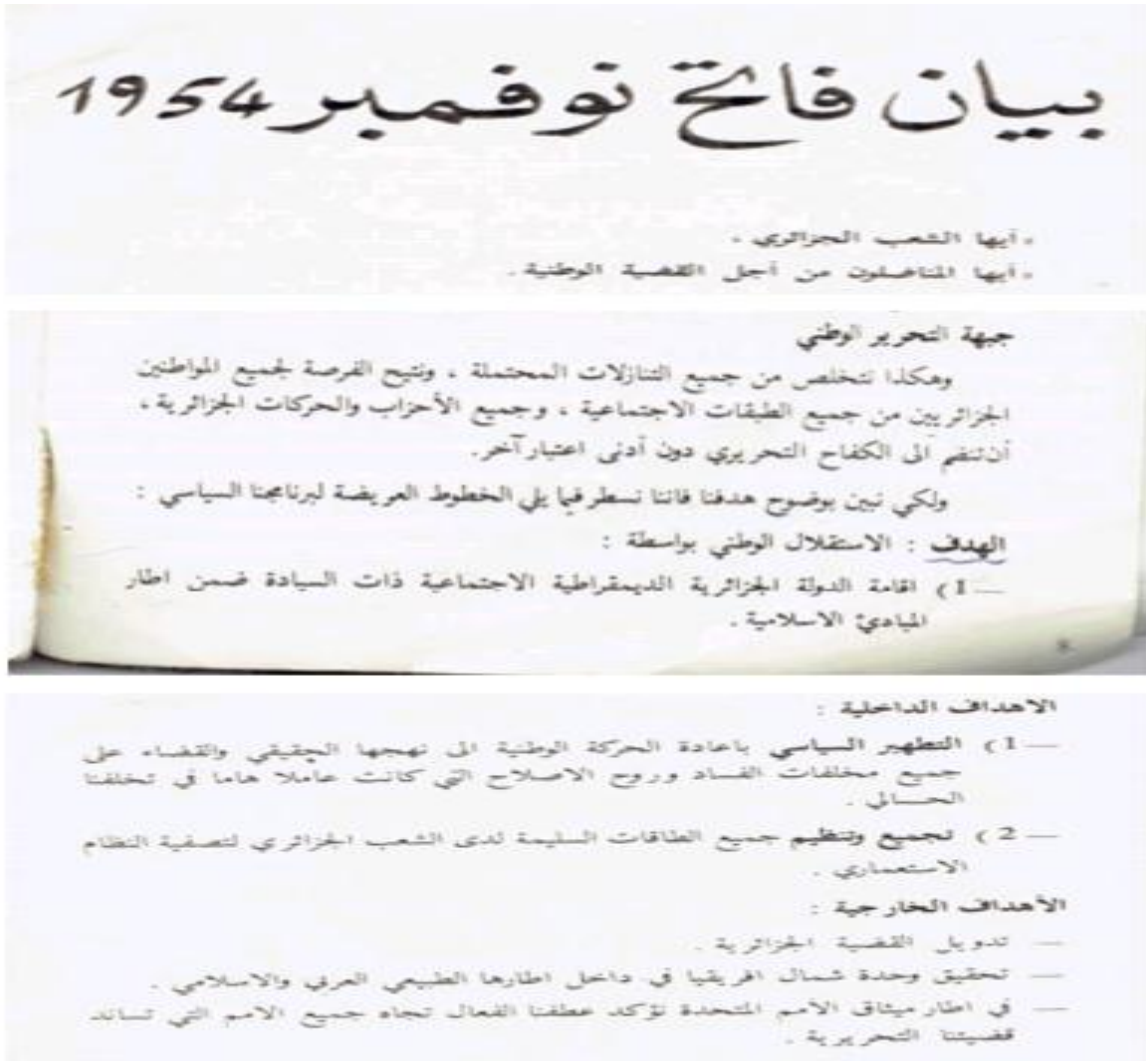 بيان فاتح نوفمبر 1954
« أيها الشعب الجزائري ،
« أيها المناضلون من أجل القضية الوطنية .
جبهة التحرير الوطني
وهكذا نتخلص من جميع التنازلات المحتملة ، ونتيح الفرصة لجميع المواطنين
الجزائريين من جميع الطبقات الاجتماعية ، وجميع الأحزاب والحركات الجزائرية ،
أن تنضم الى الكفاح التحريري دون أدنى اعتبار آخر.
ولكي نبين بوضوح هدفنا فاننا نسطر فيا يلي الخطوط العريضة لبرنامجنا السياسي :
الهدف : الاستقلال الوطني بواسطة :
— 1) اقامة الدولة الجزائرية الديمقراطية الاجتماعية ذات السيادة ضمن اطار
المبادئ الاسلامية .
الاهداف الداخلية :
— 1) التطهير السياسي باعادة الحركة الوطنية الى نهجها الحقيقي والقضاء على
جميع مخلفات الفساد وروح الاصلاح التي كانت عاملا هاما في تخلفنا
الحـالي .
— 2) تجميع وتنظيم جميع الطاقات السليمة لدى الشعب الجزائري لتصفية النظام
الاستعماري .
الأهداف الخارجية :
— تدويل القضية الجزائرية .
— تحقيق وحدة شمال افريقيا في داخل اطارها الطبيعي العربي والاسلامي .
— في اطار ميثاق الأمم المتحدة نؤكد عطفنا الفعال تجاه جميع الامم التي تساند
قضيتنا التحريرية .